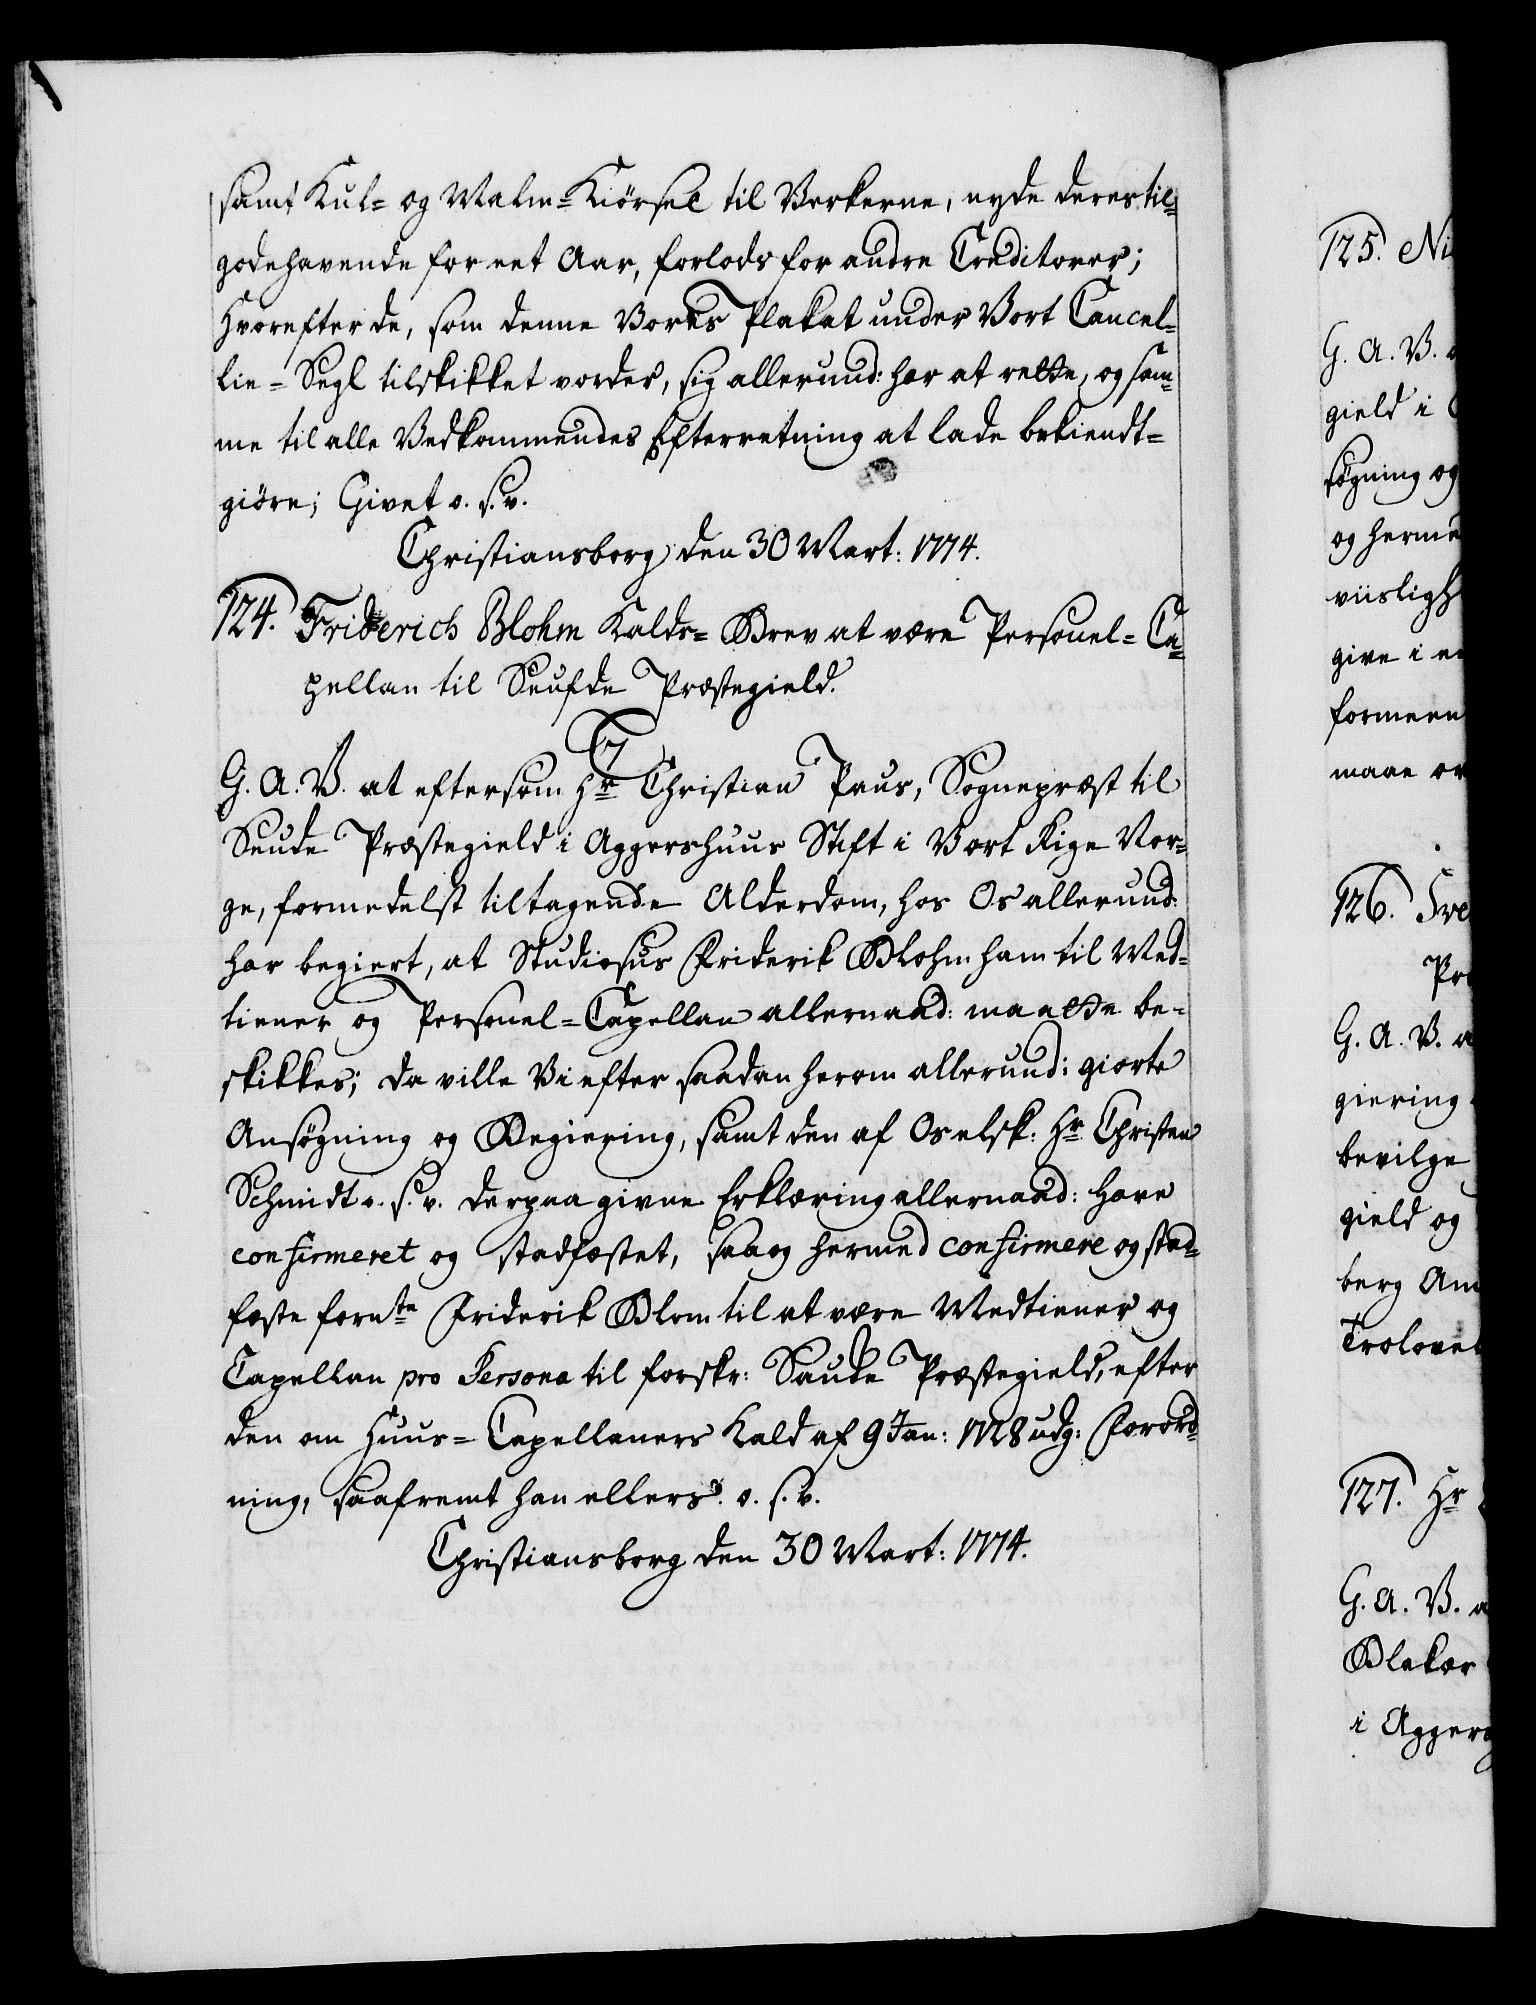 samt Kul= og Malm=Kiörsel til Verkerne, nyde deres til=
godehavende for eet Aar, forlods for andre Creditorer;
Hvorefter de, som denne Vores Plakat under Vort Cancel=
lie=Segl tilskikket vorder, sig allerund: har at rette, og sam=
me til alle Vedkommendes Efterretning at lade bekiendt=
giöre; Givet o. s. v.
Christiansborg den 30 Mart: 1774.
124. Friderich Blohm Kalds=Brev at være Personel=Ca=
pellan til Seufde Præstegield.
G. A. V. at eftersom Hr Christian Paus, Sognepræst til
Seude Præstegield i Aggershuus Stift i Vort Rige Nor=
ge, formedelst tiltagende Alderdom, hos Os allerund:
har begiert, at Studiosus Friderik Blohm ham til Med=
tiener og Personel=Capellan allernaad: maatte be=
skikkes; da ville Vi efter saadan herom allerund: giorte
Ansøgning og Begiering, samt den af Os elsk: Hr Christen
Schmidt o. s. v. derpaa givne Erklæring allernaad: have
confirmeret og stadfæstet, saa og hermed confirmere og stad=
fæste fornte Friderik Blom til at være Medtiener og
Capellan pro Persona til forskr: Saude Præstegield, efter
den om Huus=Capellaners Kald af 9 Jan: 1728 udg: Forord=
ning, saafremt han ellers. o. s. v.
Christiansborg den 30 Mart: 1774.
125. Ni
G. A. V. a
gield i
søgning og
og herme
viisligh
give i e
formeen
maae or
126. Fre
Pr
G. A. V. a
giering
bevilge
gield og
berg Am
Trolovel
127. Hr
G. A. V. a
Blakær
i Aggers